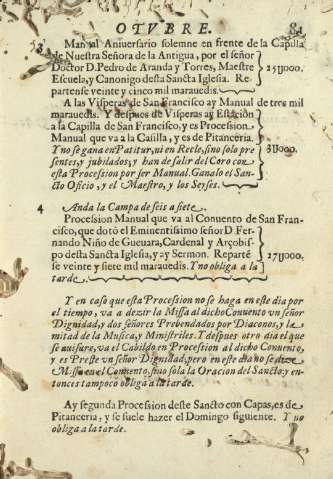 OTVBRE. 81
3 Manual Aniuersario solemne en frente de la Capilla
de Nuestra Señora de la Antigua, por el señor
Doctor D. Pedro de Aranda y Torres, Maestre
Escuela, y Canonigo desta Sancta Iglesia. Re
partense veinte y cinco mil marauedis. 25U000.
A las Visperas de San Francisco ay Manual de tres mil
marauedis. Y despues de Visperas ay Estacion
a la Capilla de San Francisco, y es Procession
Manual que va a la Capilla, y es de Pitanceria. 3U000.
Y no se gana en Patitur, ni en Recle, sino solo pre
sentes, y jubilados, y han de salir del Coro con
esta Procession por ser Manual. Ganalo el San-
cto Oficio, y el Maestro, y los Seyses.
4 Anda la Campa de seis a siete.
Procession Manual que va al Conuento de San Fran-
cisco, que dotó el Eminentissimo señor D. Fer-
nando Niño de Gueuara, Cardenal y Arçobis-
po desta Sancta Iglesia, y ay Sermon. Reparté
se veinte y siete mil marauedis. Y no obliga a la 27U000.
tarde.
Y en caso que esta Procession no se haga en este dia por
el tiempo, va a dezir la Missa al dicho Conuento vn señor
Dignidad, y dos señores Prebendados por Diaconos, y la
mitad de la Musica, y Ministriles. Y despues otro dia el que
se auisare, va el Cabildo en Procession al dicho Conuento,
y es Preste vn señor Dignidad, pero en este dia no se dize
Missa en el Conuento, sino sola la Oracion del Sancto; y en-
tonces tampoco obliga a la tarde.
Ay segunda Procession deste Sancto con Capas, es de
Pitanceria, y se suele hazer el Domingo siguiente. Y no
obliga a la tarde.